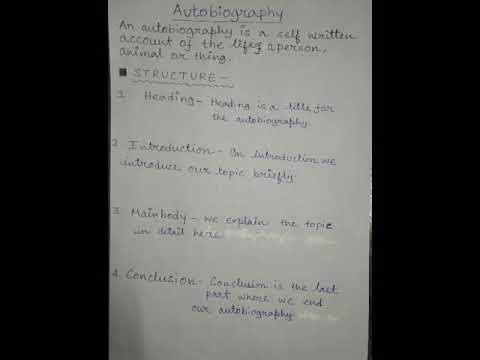 Autobiography
An autobiography is a self written
account of the life of a person,
animal or thing.
STRUCTURE -
1 Heading - Heading is a title for
the autobiography.
2 Introduction - In introduction we
introduce our topic briefly.
3 Mainbody - We explain the topic
in detail here.
4. Conclusion - Conclusion is the last
part where we end
our autobiography.